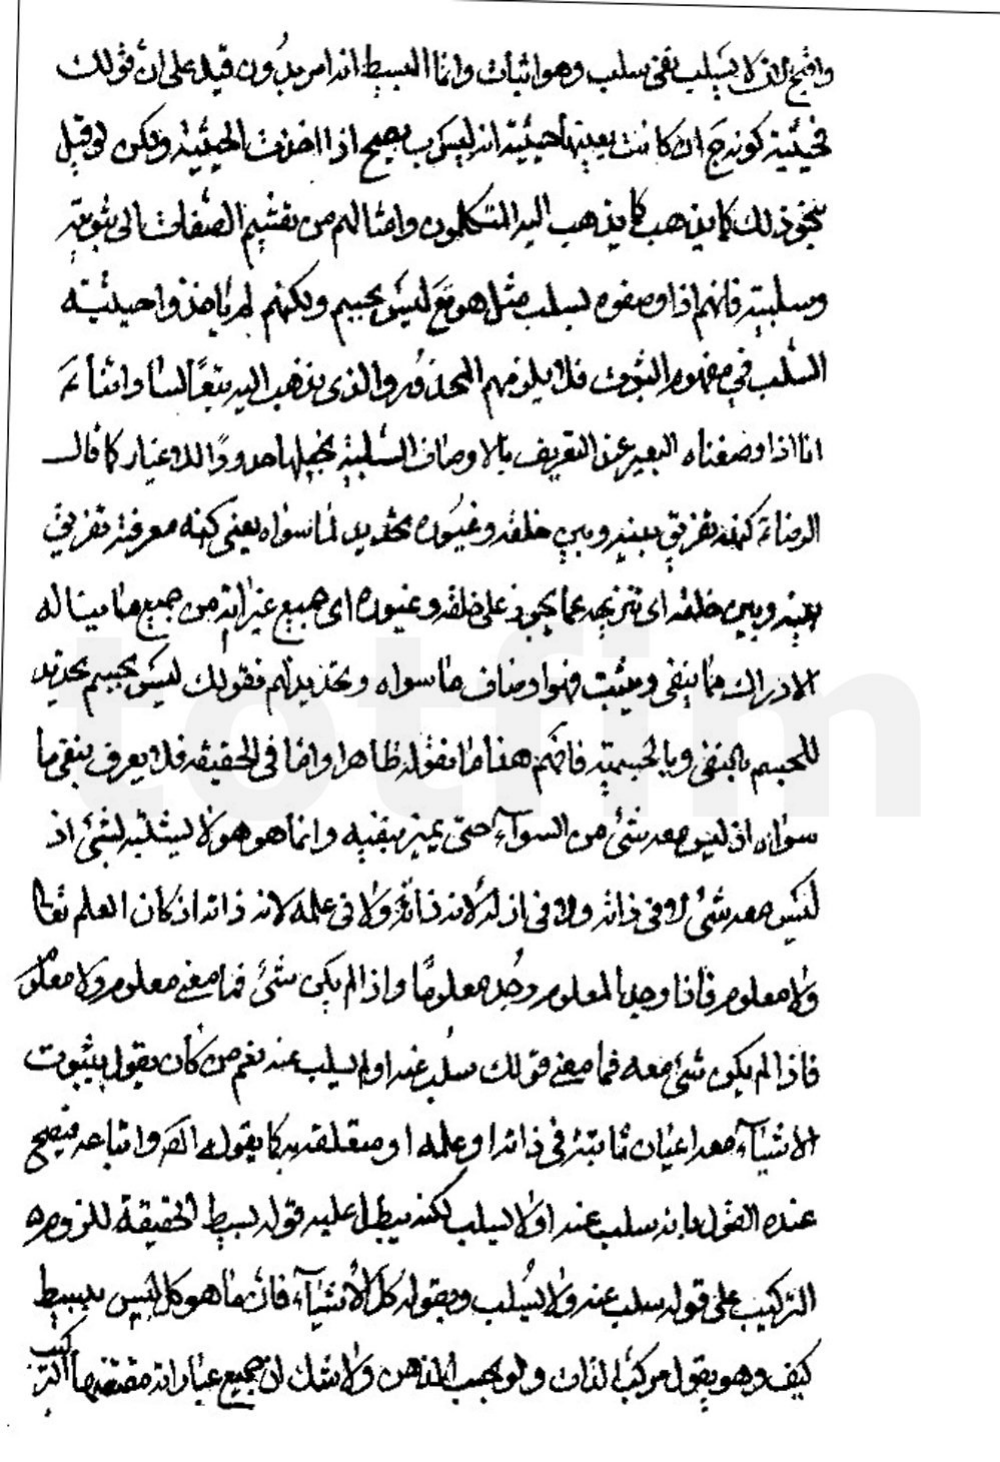 واضح لان لا يسلب نفى سلب وهو اثبات وانما البسيط انه امر بدون قيد على ان قولك
فحيثية كونه ج ان كانت بعينها حيثية انه ليس ب يصح اذا اخذت الحيثية ولكن لو قيل
بنحو ذلك كما يذهب كما يذهب اليه المتكلمون وامثالهم من تقسيم الصفات الى ثبوتية
وسلبية فانهم اذا وصفوه بسلب مثل هو تع ليس بجسم ولكنهم لم ياخذوا حيثية
السلب في مفهوم الثبوت فلا يلزمهم المحذور والذى نذهب اليه تبعًا لساداتنا ع
انا اذا وصفناه البعير عن التعريف بالاوصاف السلبية نجعلها حدودًا للاغيار كما قال
الرضا ع كنهه تفريق بينه وبين خلقه وغيوره تحديد لما سواه يعنى كنه معرفته تفريق
بينه وبين خلقه اى تنزيهه عما يجوز على خلقه وغيوره اى جميع غيراته من جميع ما يناله
الادراك مما ينفى ويثبت فهو اوصاف ما سواه وتحديداتهم فقولك ليس بجسم تحديد
للجسم بالنفى وبالجسمية فافهم هذا ما نقوله ظاهرا واما فى الحقيقه فلا يعرف بنفى ما
سواه اذ ليس معه شئ من السوآء حتى يميز بنفيه وانما هو هو لا بسلبه لشئ اذ
ليس معه شئ لا فى ذاته ولا فى ازله لانه ذاته ولا فى علمه لانه ذاته اذ كان العلم تعالى
ولا معلوم فاذا وجد المعلوم وجد معلومًا واذا لم يكن شئ فما معنى معلوم ولا معلوم
فاذا لم يكن شئ معه فما معنى قولك سلب عنه او لم يسلب عنه نعم من كان يقول بثبوت
الاشيآء معه اعيان ثابتة فى ذاته او علمه او متعلقة به كما يقوله المص واتباعه فيصح
عنده القول بانه سلب عنه او لا يسلب لكنه يبطل عليه قوله بسيط الحقيقة للزوم
التركيب على قوله سلب عنه ولا يسلب وبقوله كل الاشيآء فان ما هو كل ليس ببسيط
كيف وهو يقول مركب الذات ولو بحسب الذهن ولا شك ان جميع عباراته مقتضاها التركيب